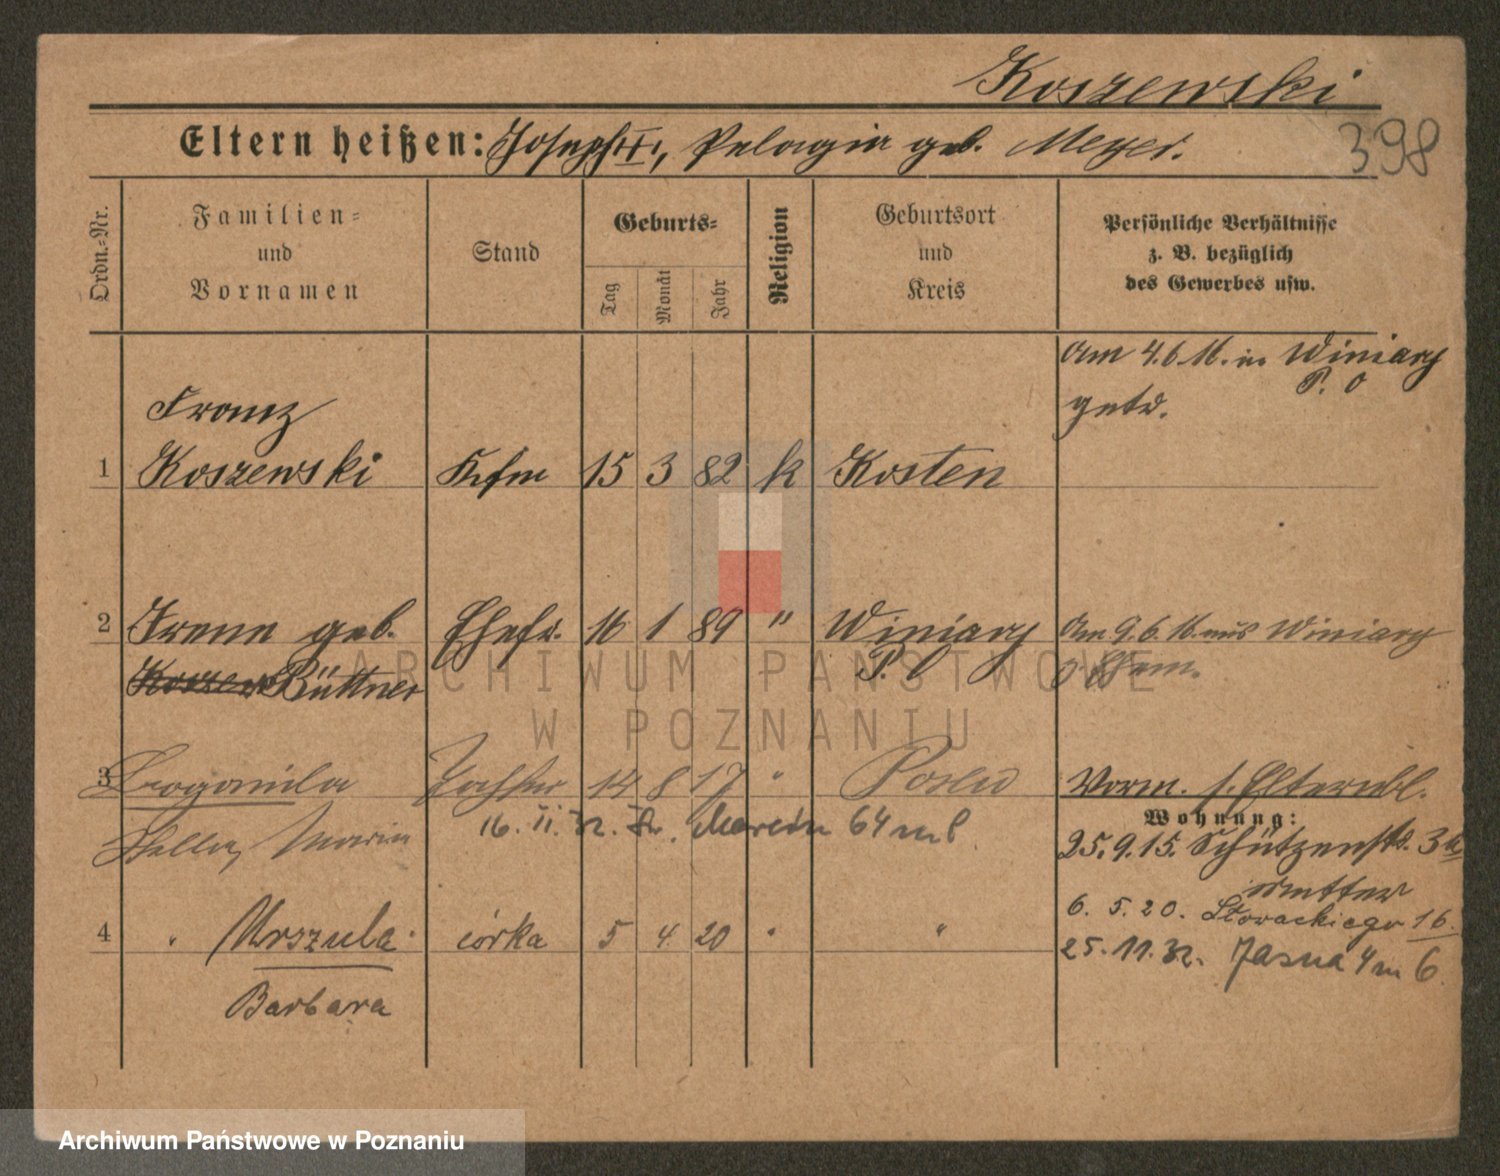 Koszewski
Eltern heißen: Joseph II., Pelagia geb. Meyer.
398
Ordn.-Nr.
Familien-
und
Vornamen
Stand
Geburts-
Tag
Monat
Jahr
Religion
Geburtsort
und
Kreis
Persönliche Verhältnisse
z. B. bezüglich
des Gewerbes usw.
Am 4.6.16. in Winiary
P. O
getr.
Franz
1 Koszewski Kfm 15 3 82 k Kosten
2 Irene geb. Ehefr. 16 1 89 " Winiary Am 9.6.16. aus Winiary
Büttner P. O
3 Bogomila Tochter 14 8 17 " Posen Vorm. s. Elternbl.
Wohnung:
Stella, Maria
16. II. 32. Św. Marcin 64 m 6
25.9.15. Schützenstr. 3a
6. 5. 20. Słowackiego 16.
4 " Urszula córka 5 4 20 " "
25. 11. 32. Jasna 4 m 6
Barbara
ARCHIWUM PAŃSTWOWE
W POZNANIU
Archiwum Państwowe w Poznaniu